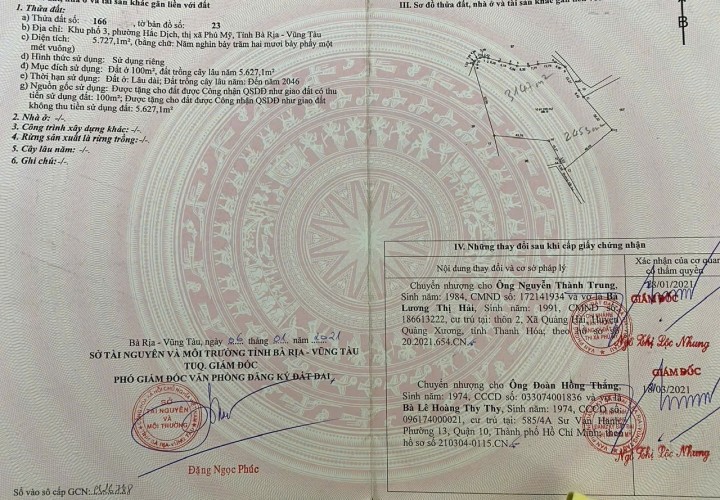 gắn liền với đất
1. Thửa đất:
a) Thửa đất số: 166 , tờ bản đồ số: 23
b) Địa chỉ: Khu phố 3, phường Hắc Dịch, thị xã Phú Mỹ, Tỉnh Bà Rịa - Vũng Tàu
c) Diện tích: 5.727,1m², (bằng chữ: Năm nghìn bảy trăm hai mươi bảy phẩy một
mét vuông)
d) Hình thức sử dụng: Sử dụng riêng
đ) Mục đích sử dụng: Đất ở 100m², đất trồng cây lâu năm 5.627,1m²
e) Thời hạn sử dụng: Đất ở: Lâu dài; Đất trồng cây lâu năm: Đến năm 2046
g) Nguồn gốc sử dụng: Được tặng cho đất được Công nhận QSDĐ như giao đất có thu
tiền sử dụng đất: 100m²; Được tặng cho đất được Công nhận QSDĐ như giao đất
không thu tiền sử dụng đất: 5.627,1m²
2. Nhà ở: -/-
3. Công trình xây dựng khác: -/-
4. Rừng sản xuất là rừng trồng: -/-
5. Cây lâu năm: -/-
6. Ghi chú: -/-
Bà Rịa - Vũng Tàu, ngày 01 năm 2021
SỞ TÀI NGUYÊN VÀ MÔI TRƯỜNG TỈNH BÀ RỊA - VŨNG TÀU
TUQ. GIÁM ĐỐC
PHÓ GIÁM ĐỐC VĂN PHÒNG ĐĂNG KÝ ĐẤT ĐAI
SỞ
TÀI NGUYÊN
VÀ
MÔI TRƯỜNG
Đặng Ngọc Phúc
Số vào sổ cấp GCN:
III. Sơ đồ thửa đất, nhà ở và tài sản khác gắn liền với đất
B
IV. Những thay đổi sau khi cấp giấy chứng nhận
Nội dung thay đổi và cơ sở pháp lý
Xác nhận của cơ quan
có thẩm quyền
Chuyển nhượng cho Ông Nguyễn Thành Trung,
Sinh năm: 1984, CMND số: 172141934 và vợ là Bà
Lương Thị Hải, Sinh năm: 1991, CMND số:
186613222, cư trú tại: thôn 2, Xã Quảng Hải, Huyện
Quảng Xương, tỉnh Thanh Hóa; theo hồ sơ số
20.2021.654.CN
/01/2021
GIÁM ĐỐC
Ngô Thị Lộc Nhung
Chuyển nhượng cho Ông Đoàn Hồng Thắng,
Sinh năm: 1974, CCCD số: 033074001836 và vợ là
Bà Lê Hoàng Thy Thy, Sinh năm: 1974, CCCD số:
096174000021, cư trú tại: 585/4A Sư Vạn Hạnh,
Phường 13, Quận 10, Thành phố Hồ Chí Minh; theo
hồ sơ số 210304-0115.CN
GIÁM ĐỐC
/03/2021
Ngô Thị Lộc Nhung